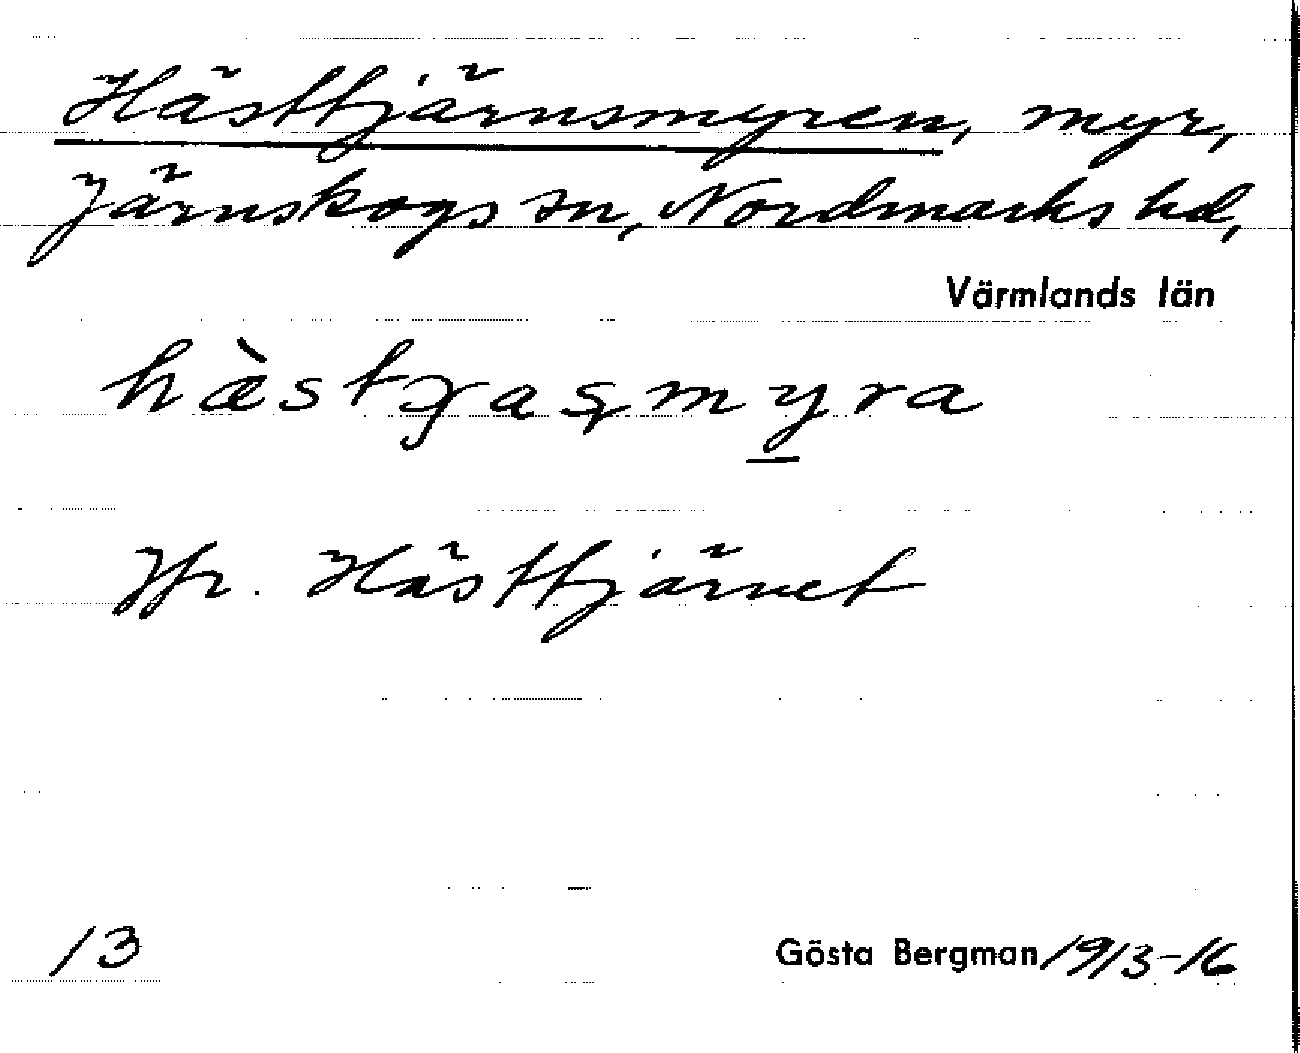 Hästtjärnsmyren, myr,
Järnskogs sn, Nordmarks hd,
Värmlands län
Jfr. Hästtjärnet
13
Gösta Bergman 1913-16